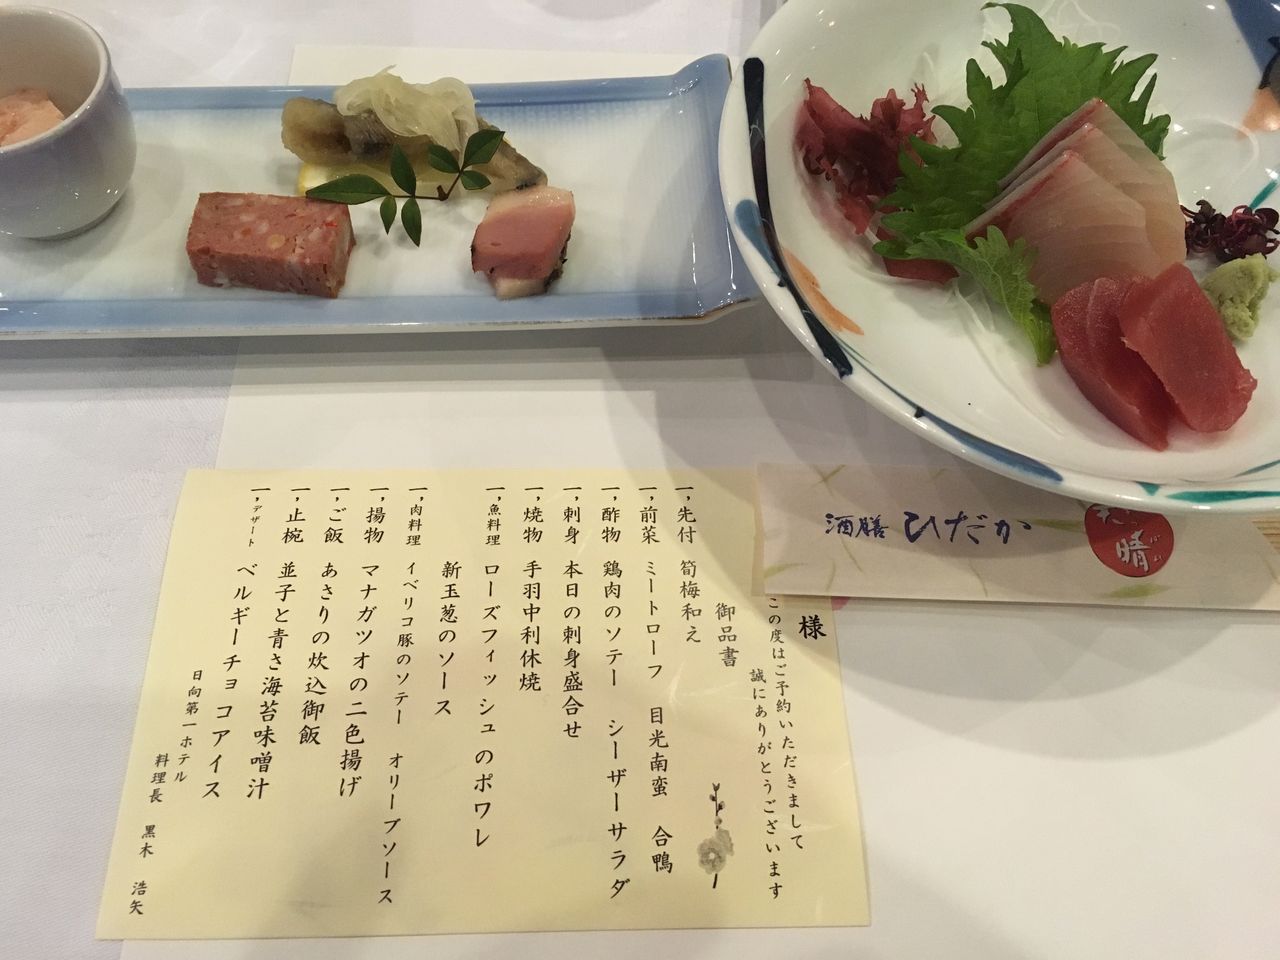 様
この度はご予約いただきまして
誠にありがとうございます
御品書
一，先付 筍梅和え
一，前菜 ミートローフ 目光南蛮 合鴨
一，酢物 鶏肉のソテー シーザーサラダ
一，刺身 本日の刺身盛合せ
一，焼物 手羽中利休焼
一，魚料理 ローズフィッシュのポワレ
新玉葱のソース
一，肉料理 イベリコ豚のソテー オリーブソース
一，揚物 マナガツオの二色揚げ
一，ご飯 あさりの炊込御飯
一，止椀 並子と青さ海苔味噌汁
一，デザート ベルギーチョコアイス
日向第一ホテル
料理長 黒木 浩矢
酒膳 ひだか
晴